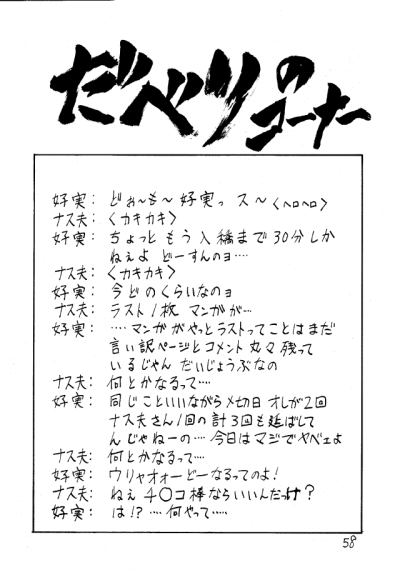 だべりの
コーナー
好実: どぉ〜も〜 好実っ ス〜 〈ヘロヘロ〉
ナス夫: 〈カキカキ〉
好実: ちょっと もう 入稿まで 30分しか
ねぇよ どーすんのョ‥‥
ナス夫: 〈カキカキ〉
好実: 今どのくらいなのョ
ナス夫: ラスト1枚 マンガが‥
好実: ‥‥マンガがやっとラストってことはまだ
言い訳ページとコメント丸々残って
いるじゃん だいじょうぶなの
ナス夫: 何とかなるって‥‥
好実: 同じこといいながらメ切日 オレが2回
ナス夫さん1回の計3回も延ばして
んじゃねーの‥‥今日はマジでヤベェよ
ナス夫: 何とかなるって‥‥
好実: ウリャオォーどーなるってのよ!
ナス夫: ねぇ 4〇コ棒ならいいんだっけ?
好実: は!? ‥‥何やって‥‥‥
58